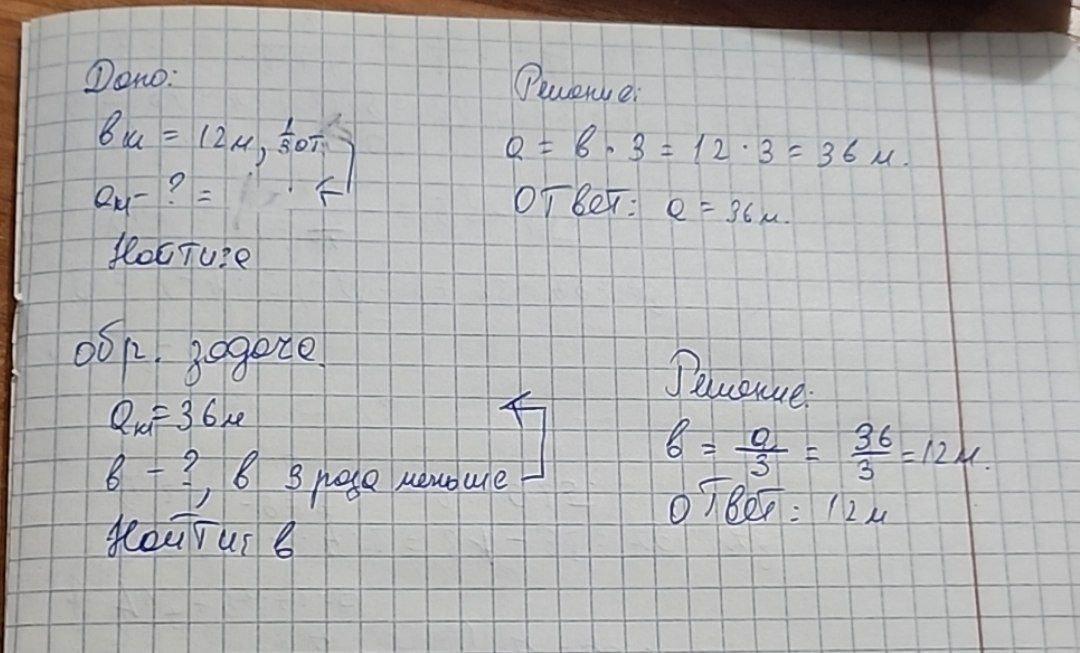 Дано:
вм = 12м, 1/3 от
ам - ? =
Найти: а
Решение:
а = в · 3 = 12 · 3 = 36 м.
Ответ: а = 36м.
обр. задача.
ам = 36м
в - ?, в 3 раза меньше
Найти: в
Решение:
в = а/3 = 36/3 = 12м.
Ответ: 12м